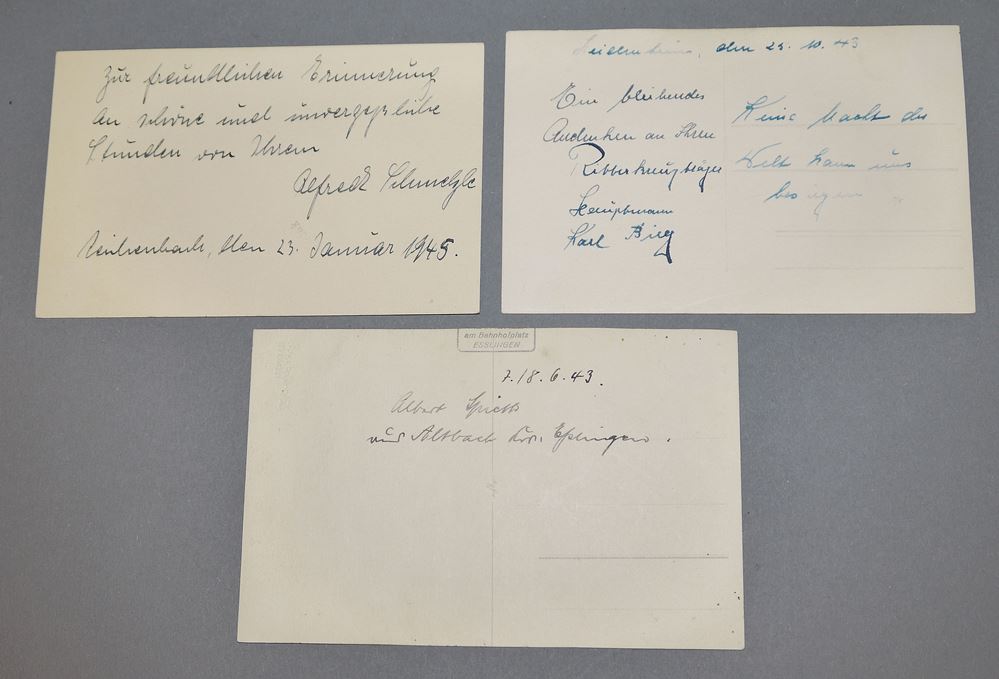 Zur freundlichen Erinnerung
an schöne und unvergeßliche
Stunden von Ihrem
Alfred Schmelzle
Reichenbach, den 23. Januar 1945.
den 23. 10. 43
Ein bleibendes
Andenken an Ihren
Ritterkreuzträger
Hauptmann
Karl
Keine Macht der
Welt kann uns
besiegen
am Bahnhofplatz
ESSLINGEN
7./8. 6. 43.
Albert
aus Altbach Krs. Eßlingen.